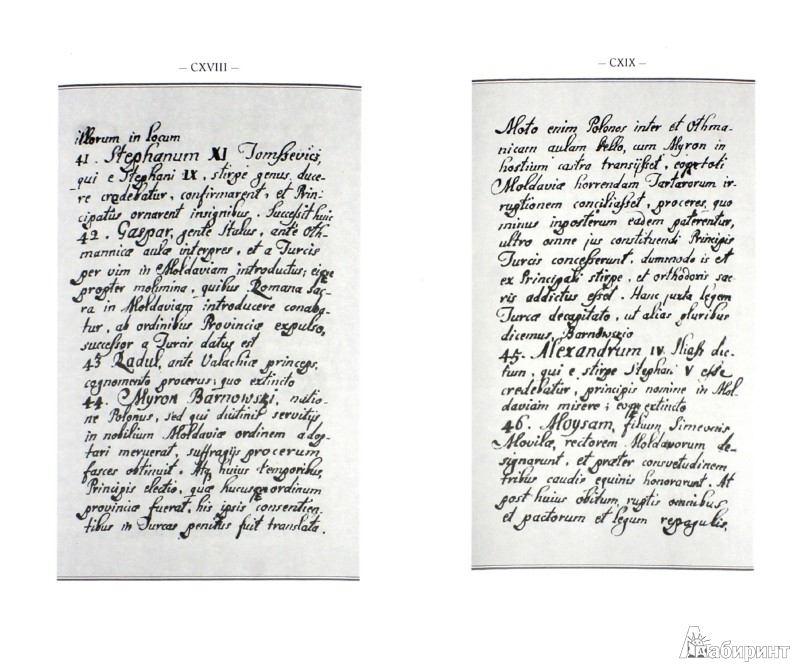 — CXVIII —
illorum in locum
41. Stephanum XI Tomssevici,
qui e Stephani IX, stirpe genus duce-
re credebatur, confirmarent, et Prin-
cipatus ornarent insignibus. Successit huic
42. Gaspar, gente Italus, ante Oth-
mannicæ aulæ interpres, et a Turcis
per vim in Moldaviam introductus;
propter molimina, quibus Romana sac-
ra in Moldaviam introducere conaba-
tur, ab ordinibus Provinciæ expulso,
successor a Turcis datus est
43 Radul, ante Valachiæ princeps,
cognomento procerus; quo extincto
44. Myron Barnowski, natio-
ne Polonus, sed qui diutinis servitijs
in nobilium Moldaviæ ordinem adop-
tari meruerat, suffragijs procerum
fasces obtinuit. Atq huius temporibus,
Principis electio, quæ hucusq ordinum
provinciæ fuerat, his ipsis consentien-
tibus in Turcas penitus fuit translata.
— CXIX —
Moto enim Polonos inter et Othma-
nicam aulam bello, cum Myron in
hostium castra transijsset, et
Moldaviæ horrendam Tartarorum ir-
ruptionem conciliasset, proceres, quo
minus inposterum eadem paterentur,
ultro omne jus constituendi Principis
Turcis concesserunt, dummodo is et
ex Principali stirpe, et orthodoxis sac-
ris addictus esset. Hanc juxta legem
Turcæ decapitato, ut alias pluribus
dicemus, Barnowscio
45. Alexandrum IV. Iliaß dic-
tum, qui e stirpe Stephani V esse
credebatur, principis nomine in Mol-
daviam misere; eoq extincto
46. Moysam, filium, Simeonis
Movilæ, rectorem Moldavorum de-
signarunt, et præter consvetudinem
tribus caudis equinis honorarunt. At
post huius obitum, ruptis omnibus
et pactorum et legum repagulis,
Лабиринт